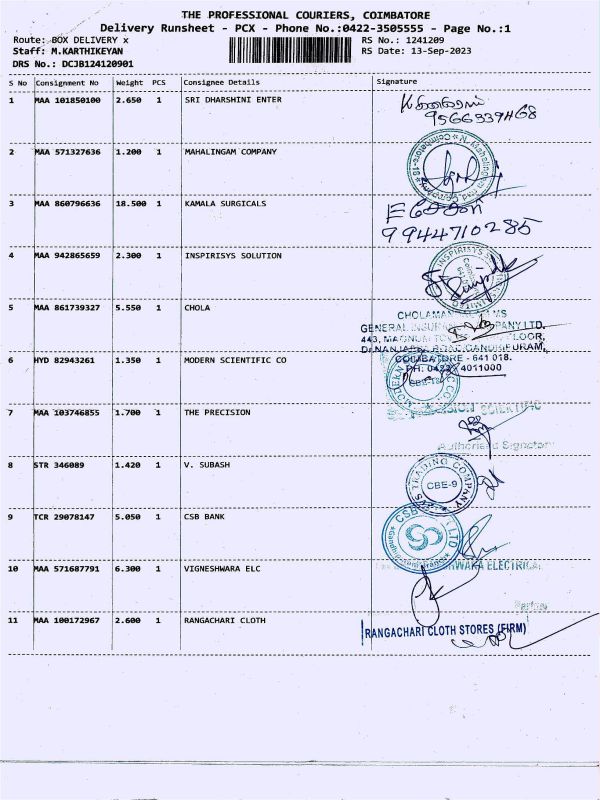 THE PROFESSIONAL COURIERS, COIMBATORE
Delivery Runsheet - PCX - Phone No.:0422-3505555 - Page No.:1
Route: BOX DELIVERY x RS No.: 1241209
Staff: M.KARTHIKEYAN RS Date: 13-Sep-2023
DRS No.: DCJB124120901
S No Consignment No Weight PCS Consignee Details Signature
1 MAA 101850100 2.650 1 SRI DHARSHINI ENTER
2 MAA 571327636 1.200 1 MAHALINGAM COMPANY
3 MAA 860796636 18.500 1 KAMALA SURGICALS
9944710285
4 MAA 942865659 2.300 1 INSPIRISYS SOLUTION
INSPIRISYS
5 MAA 861739327 5.550 1 CHOLA
GENERAL
443, FLOOR,
COIMBATORE - 641 018.
PH: 4011000
6 HYD 82943261 1.350 1 MODERN SCIENTIFIC CO
MODERN
CBE-18
SCIENTIFIC
7 MAA 103746855 1.700 1 THE PRECISION
Authorised Signatory
8 STR 346089 1.420 1 V. SUBASH
TRADING COMPANY
CBE-9
9 TCR 29078147 5.050 1 CSB BANK
CSB LTD
10 MAA 571687791 6.300 1 VIGNESHWARA ELC
Partner
11 MAA 100172967 2.600 1 RANGACHARI CLOTH
RANGACHARI CLOTH STORES (FIRM)